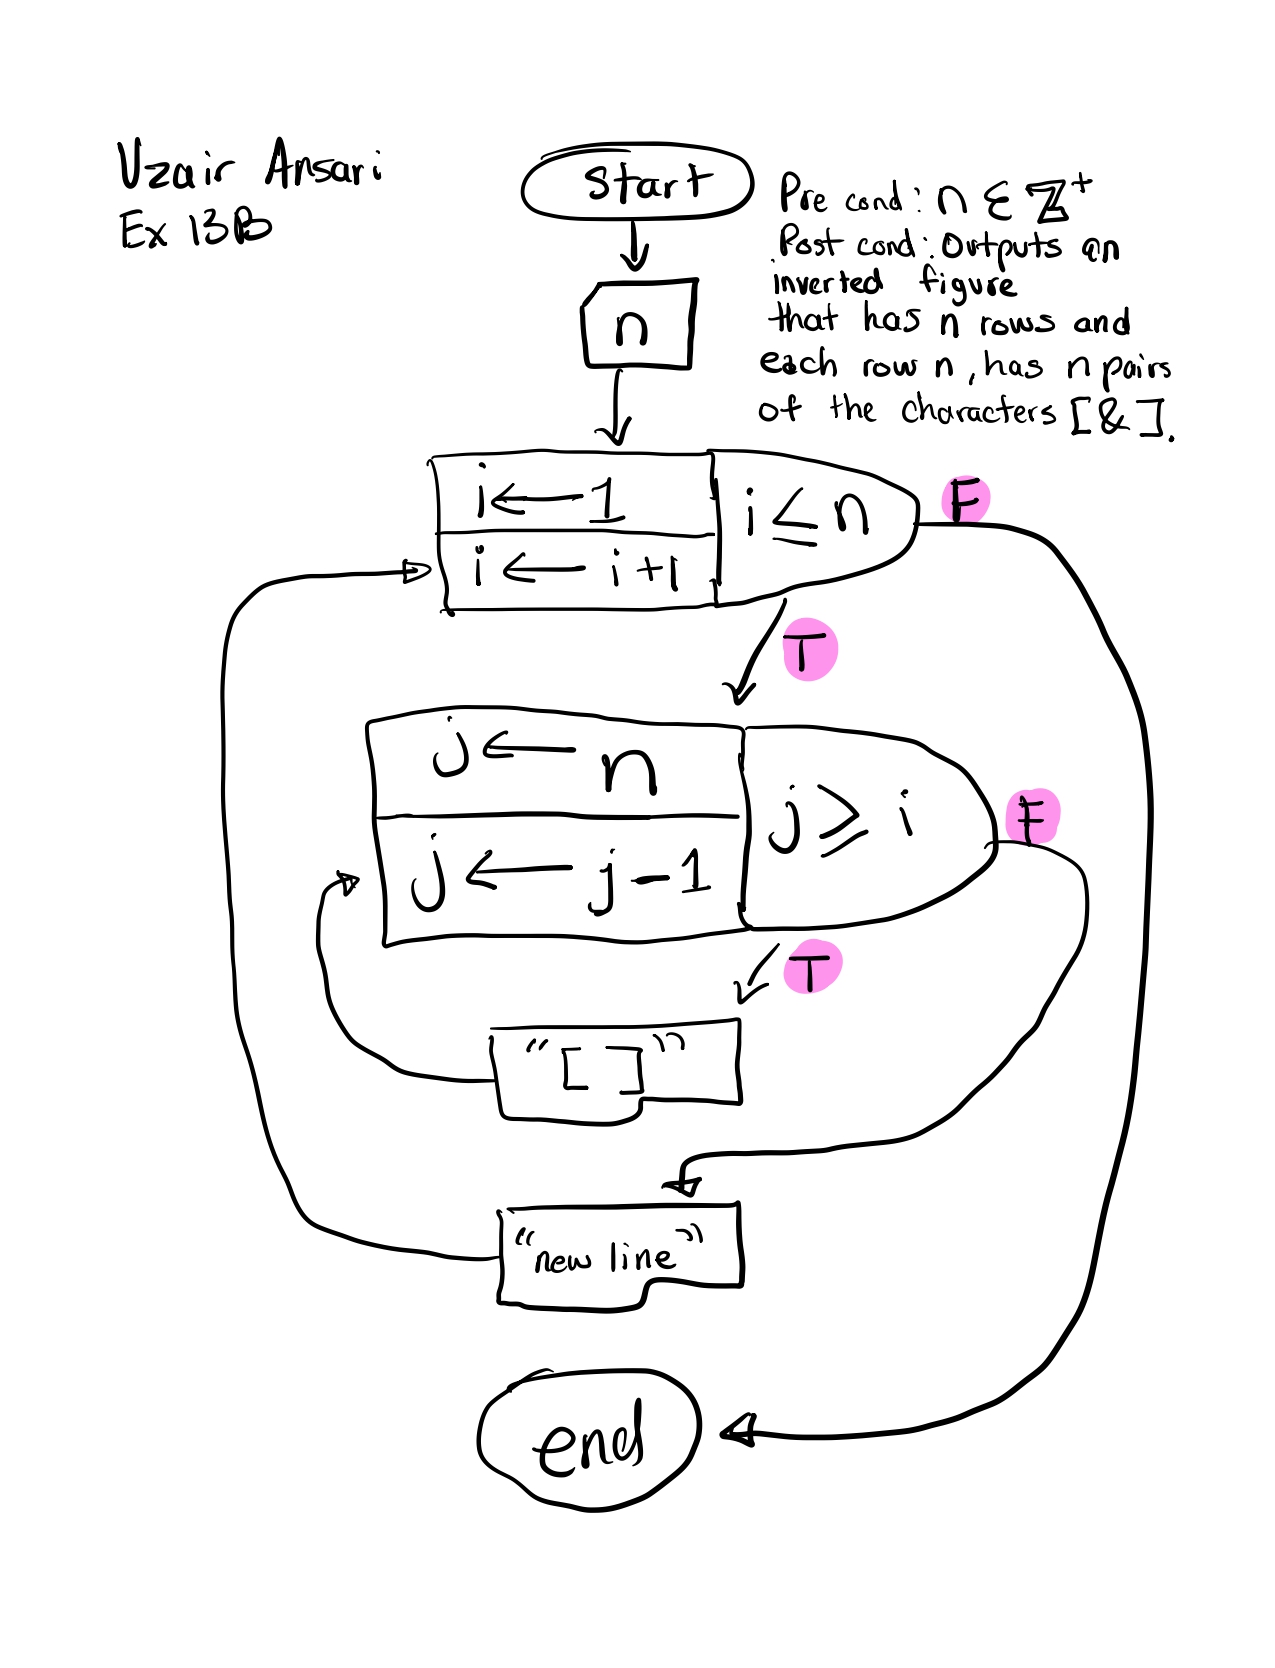 Uzair Ansari
Ex 13B
Start
Pre cond: n ∈ ℤ⁺
Post cond: Outputs an
inverted figure
that has n rows and
each row n, has n pairs
of the characters [&].
n
i ← 1
i ≤ n
F
i ← i+1
T
j ← n
j ≥ i
F
j ← j-1
T
"[ ]"
"new line"
end